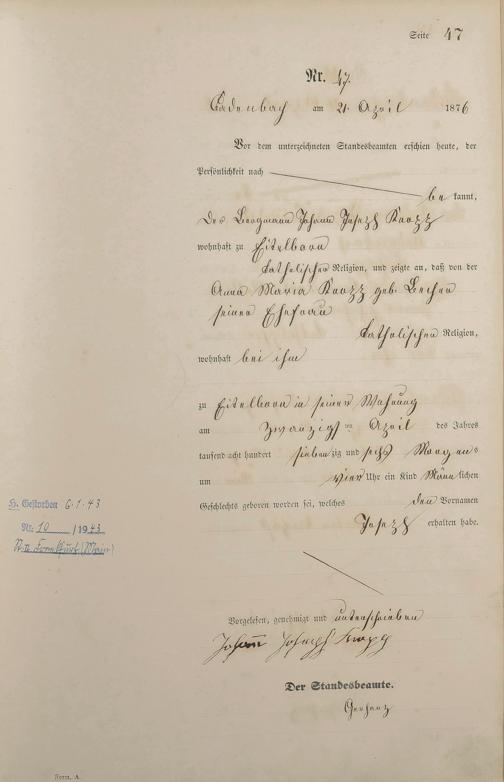 Seite 47
Nr. 47.
Cadenbach am 21. April 1876
Vor dem unterzeichneten Standesbeamten erschien heute, der
Persönlichkeit nach
be kannt,
der Bergmann Johann Joseph Knopp
wohnhaft zu Eitelborn
katholischer Religion, und zeigte an, daß von der
Anna Maria Knopp geb. Lechen
seiner Ehefrau
katholischer Religion,
wohnhaft bei ihm
zu Eitelborn in seiner Wohnung
am zwanzigsten April des Jahres
tausend acht hundert siebenzig und sechs Morgens
um vier Uhr ein Kind Männlichen
Geschlechts geboren worden sei, welches den Vornamen
Joseph erhalten habe.
H. Gestorben 6.1.43
Nr. 10 /1943
Frankfurt (Main)
Vorgelesen, genehmigt und unterschrieben
Johann Joseph Knopp
Der Standesbeamte.
Gerharz
Form. A